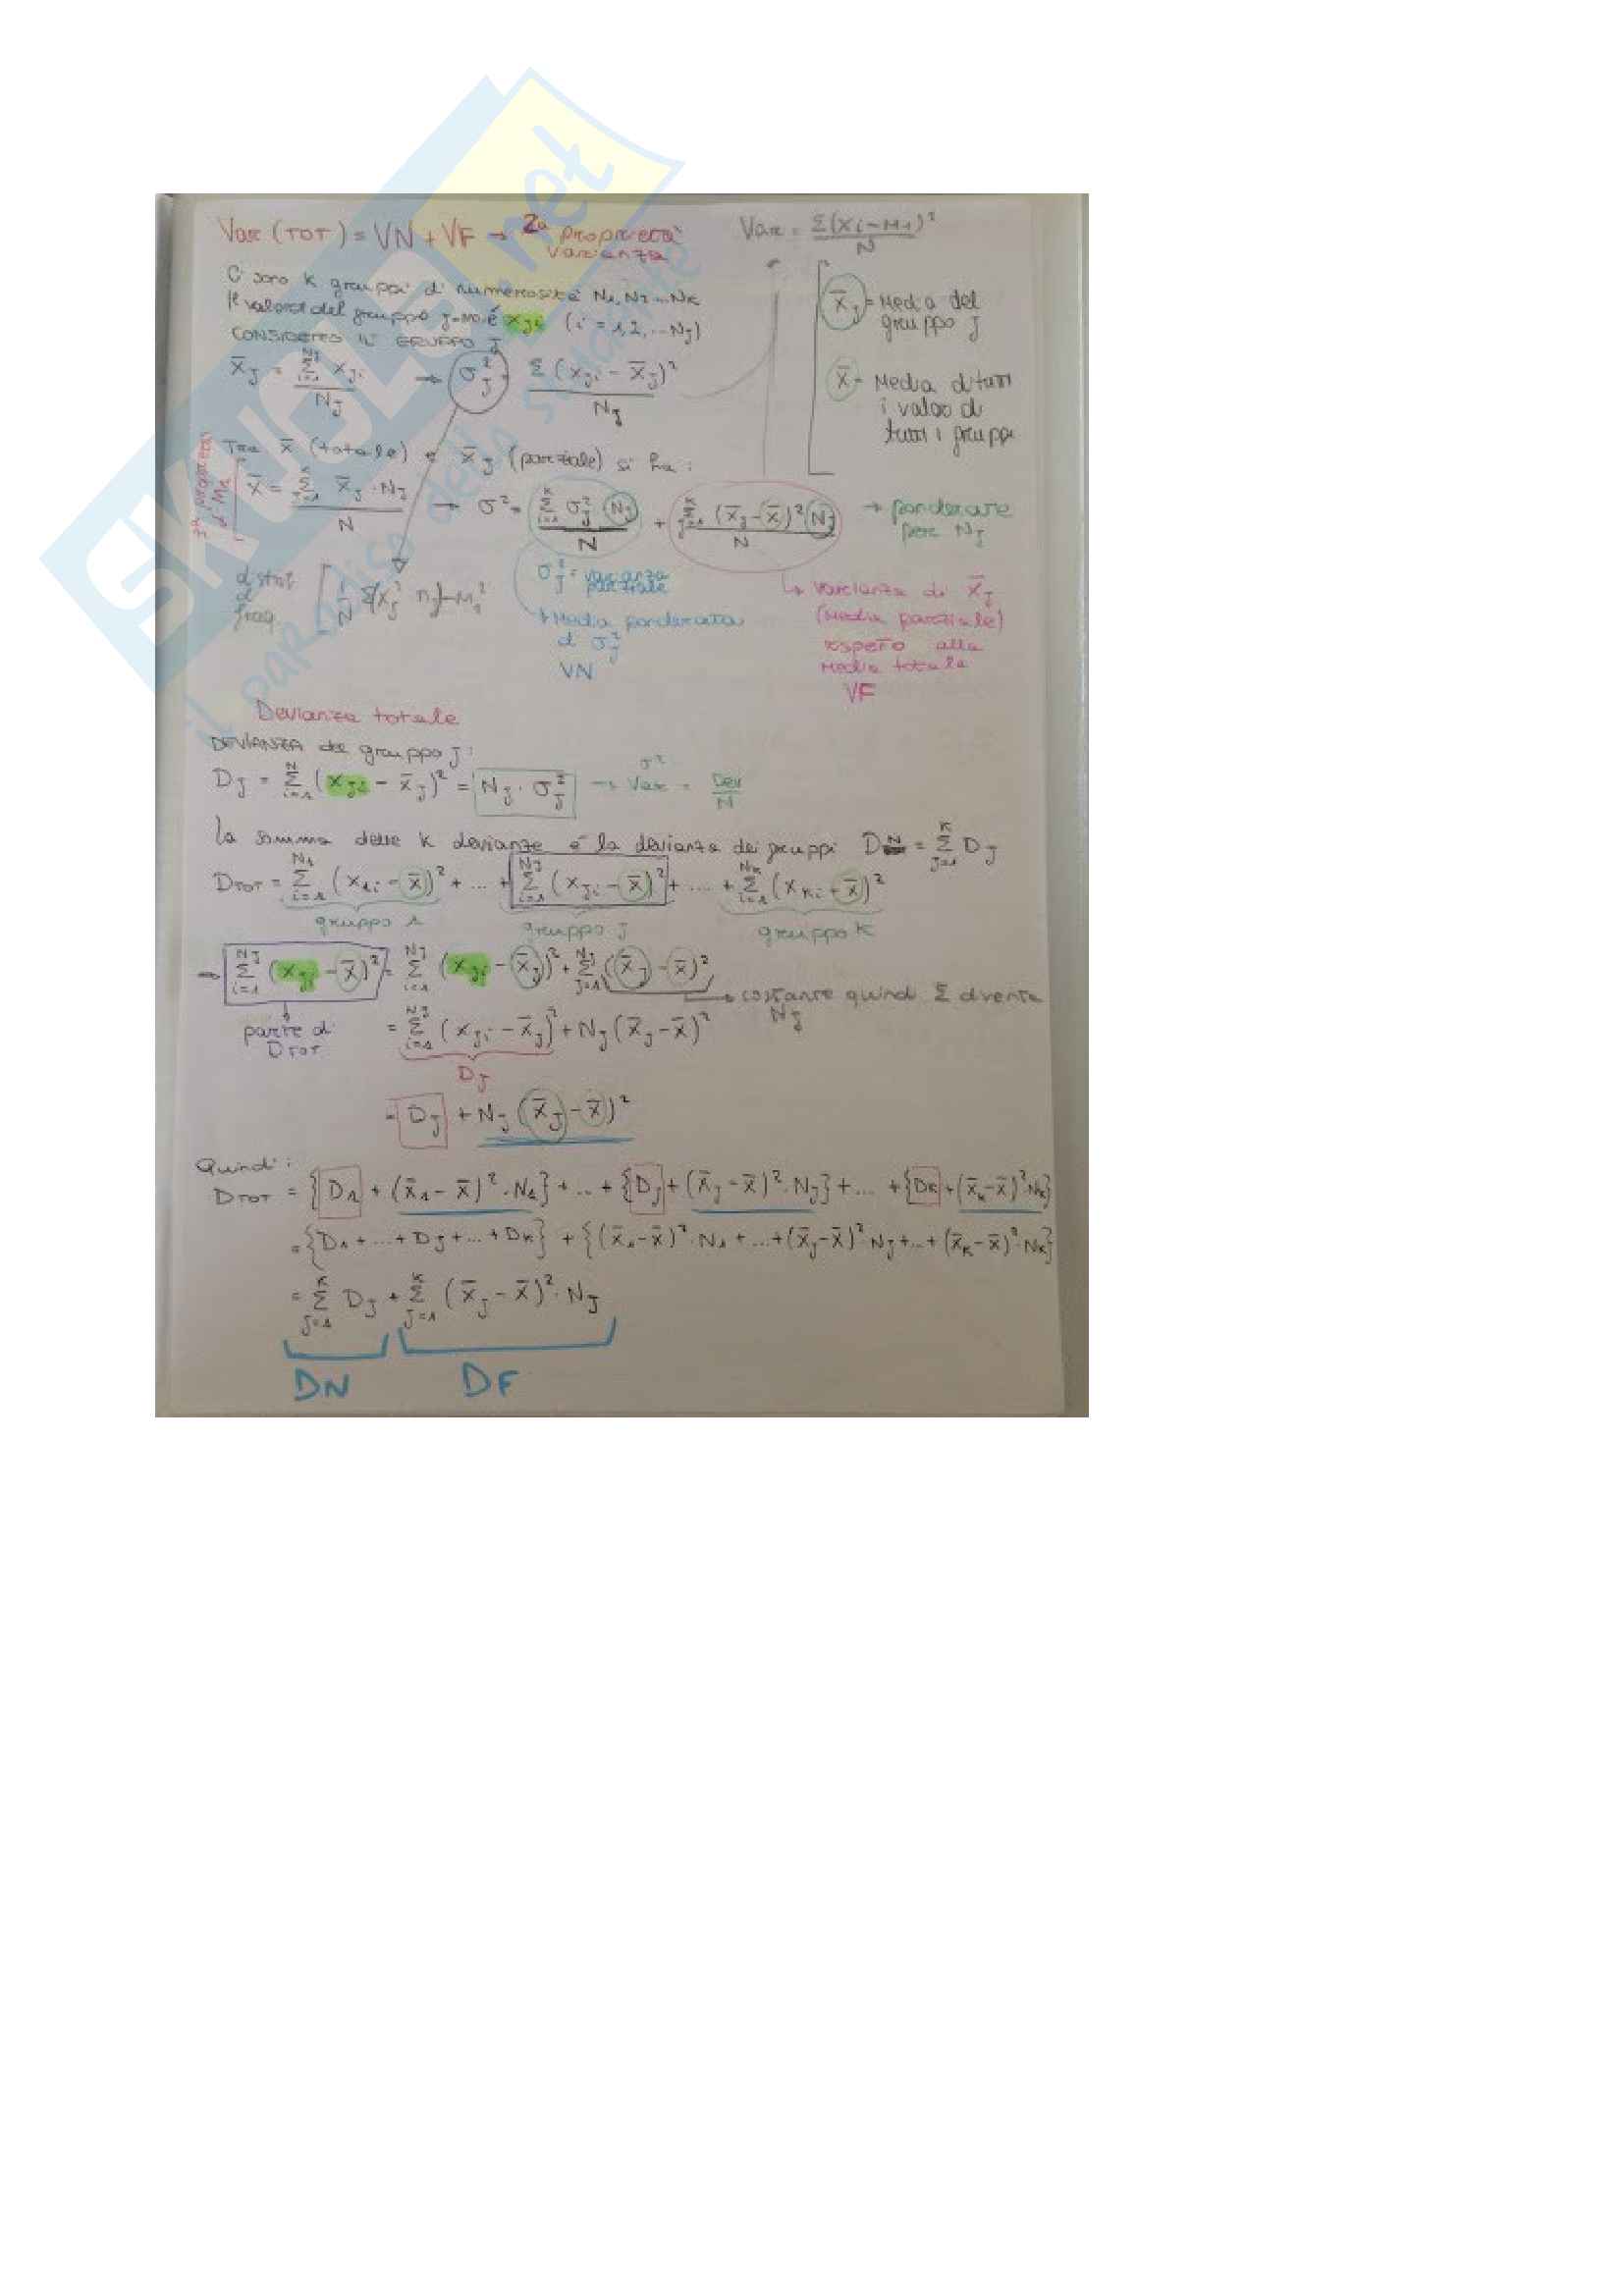 Var (TOT) = VN + VF → 2ª proprietà varianza
Var = Σ(xi - M1)² / N
Ci sono K gruppi di numerosità N1, NJ ... NK
Il valore del gruppo J-mo è xJi (i = 1,2, ... NJ)
CONSIDERO IL GRUPPO J
x̄J = Σ(i=1→NJ) xJi / NJ → σJ² = Σ (xJi - x̄J)² / NJ
x̄J = Media del gruppo J
x̄ = Media di tutti i valori di tutti i gruppi
Tra x̄ (totale) e x̄J (parziale) si ha:
proprietà di M1
x̄ = Σ(J=1→K) x̄J · NJ / N → σ² = Σ(i=1→K) σJ² NJ / N + Σ(J=1→K) (x̄J - x̄)² NJ / N → ponderare per NJ
distr di freq. [ 1/N Σ(xJ² nJ) - M1²
σJ² = varianza parziale
→ Media ponderata di σJ²
VN
↳ varianza di x̄J (media parziale) rispetto alla media totale
VF
Devianza totale
DEVIANZA del gruppo J:
DJ = Σ(i=1→N) (xJi - x̄J)² = NJ · σJ² → σ² Var = Dev / N
La somma delle K devianze è la devianza dei gruppi DN = Σ(J=1→K) DJ
DTOT = Σ(i=1→N1) (x1i - x̄)² + ... + Σ(i=1→NJ) (xJi - x̄)² + .... + Σ(i=1→NK) (xKi - x̄)²
gruppo 1 gruppo J gruppo K
→ Σ(i=1→NJ) (xJi - x̄)² = Σ(i=1→NJ) (xJi - x̄J)² + Σ(J=1→NJ) (x̄J - x̄)²
→ costante quindi Σ diventa NJ
parte di DTOT
= Σ(i=1→NJ) (xJi - x̄J)² + NJ (x̄J - x̄)²
DJ
= DJ + NJ (x̄J - x̄)²
Quindi:
DTOT = {D1 + (x̄1 - x̄)² · N1} + .. + {DJ + (x̄J - x̄)² · NJ} + ... + {DK + (x̄K - x̄)² · NK}
= {D1 + ... + DJ + ... + DK} + {(x̄1 - x̄)² · N1 + ... + (x̄J - x̄)² · NJ + .. + (x̄K - x̄)² · NK}
= Σ(J=1→K) DJ + Σ(J=1→K) (x̄J - x̄)² · NJ
DN DF
SKUOLA.net
il paradiso dello studente